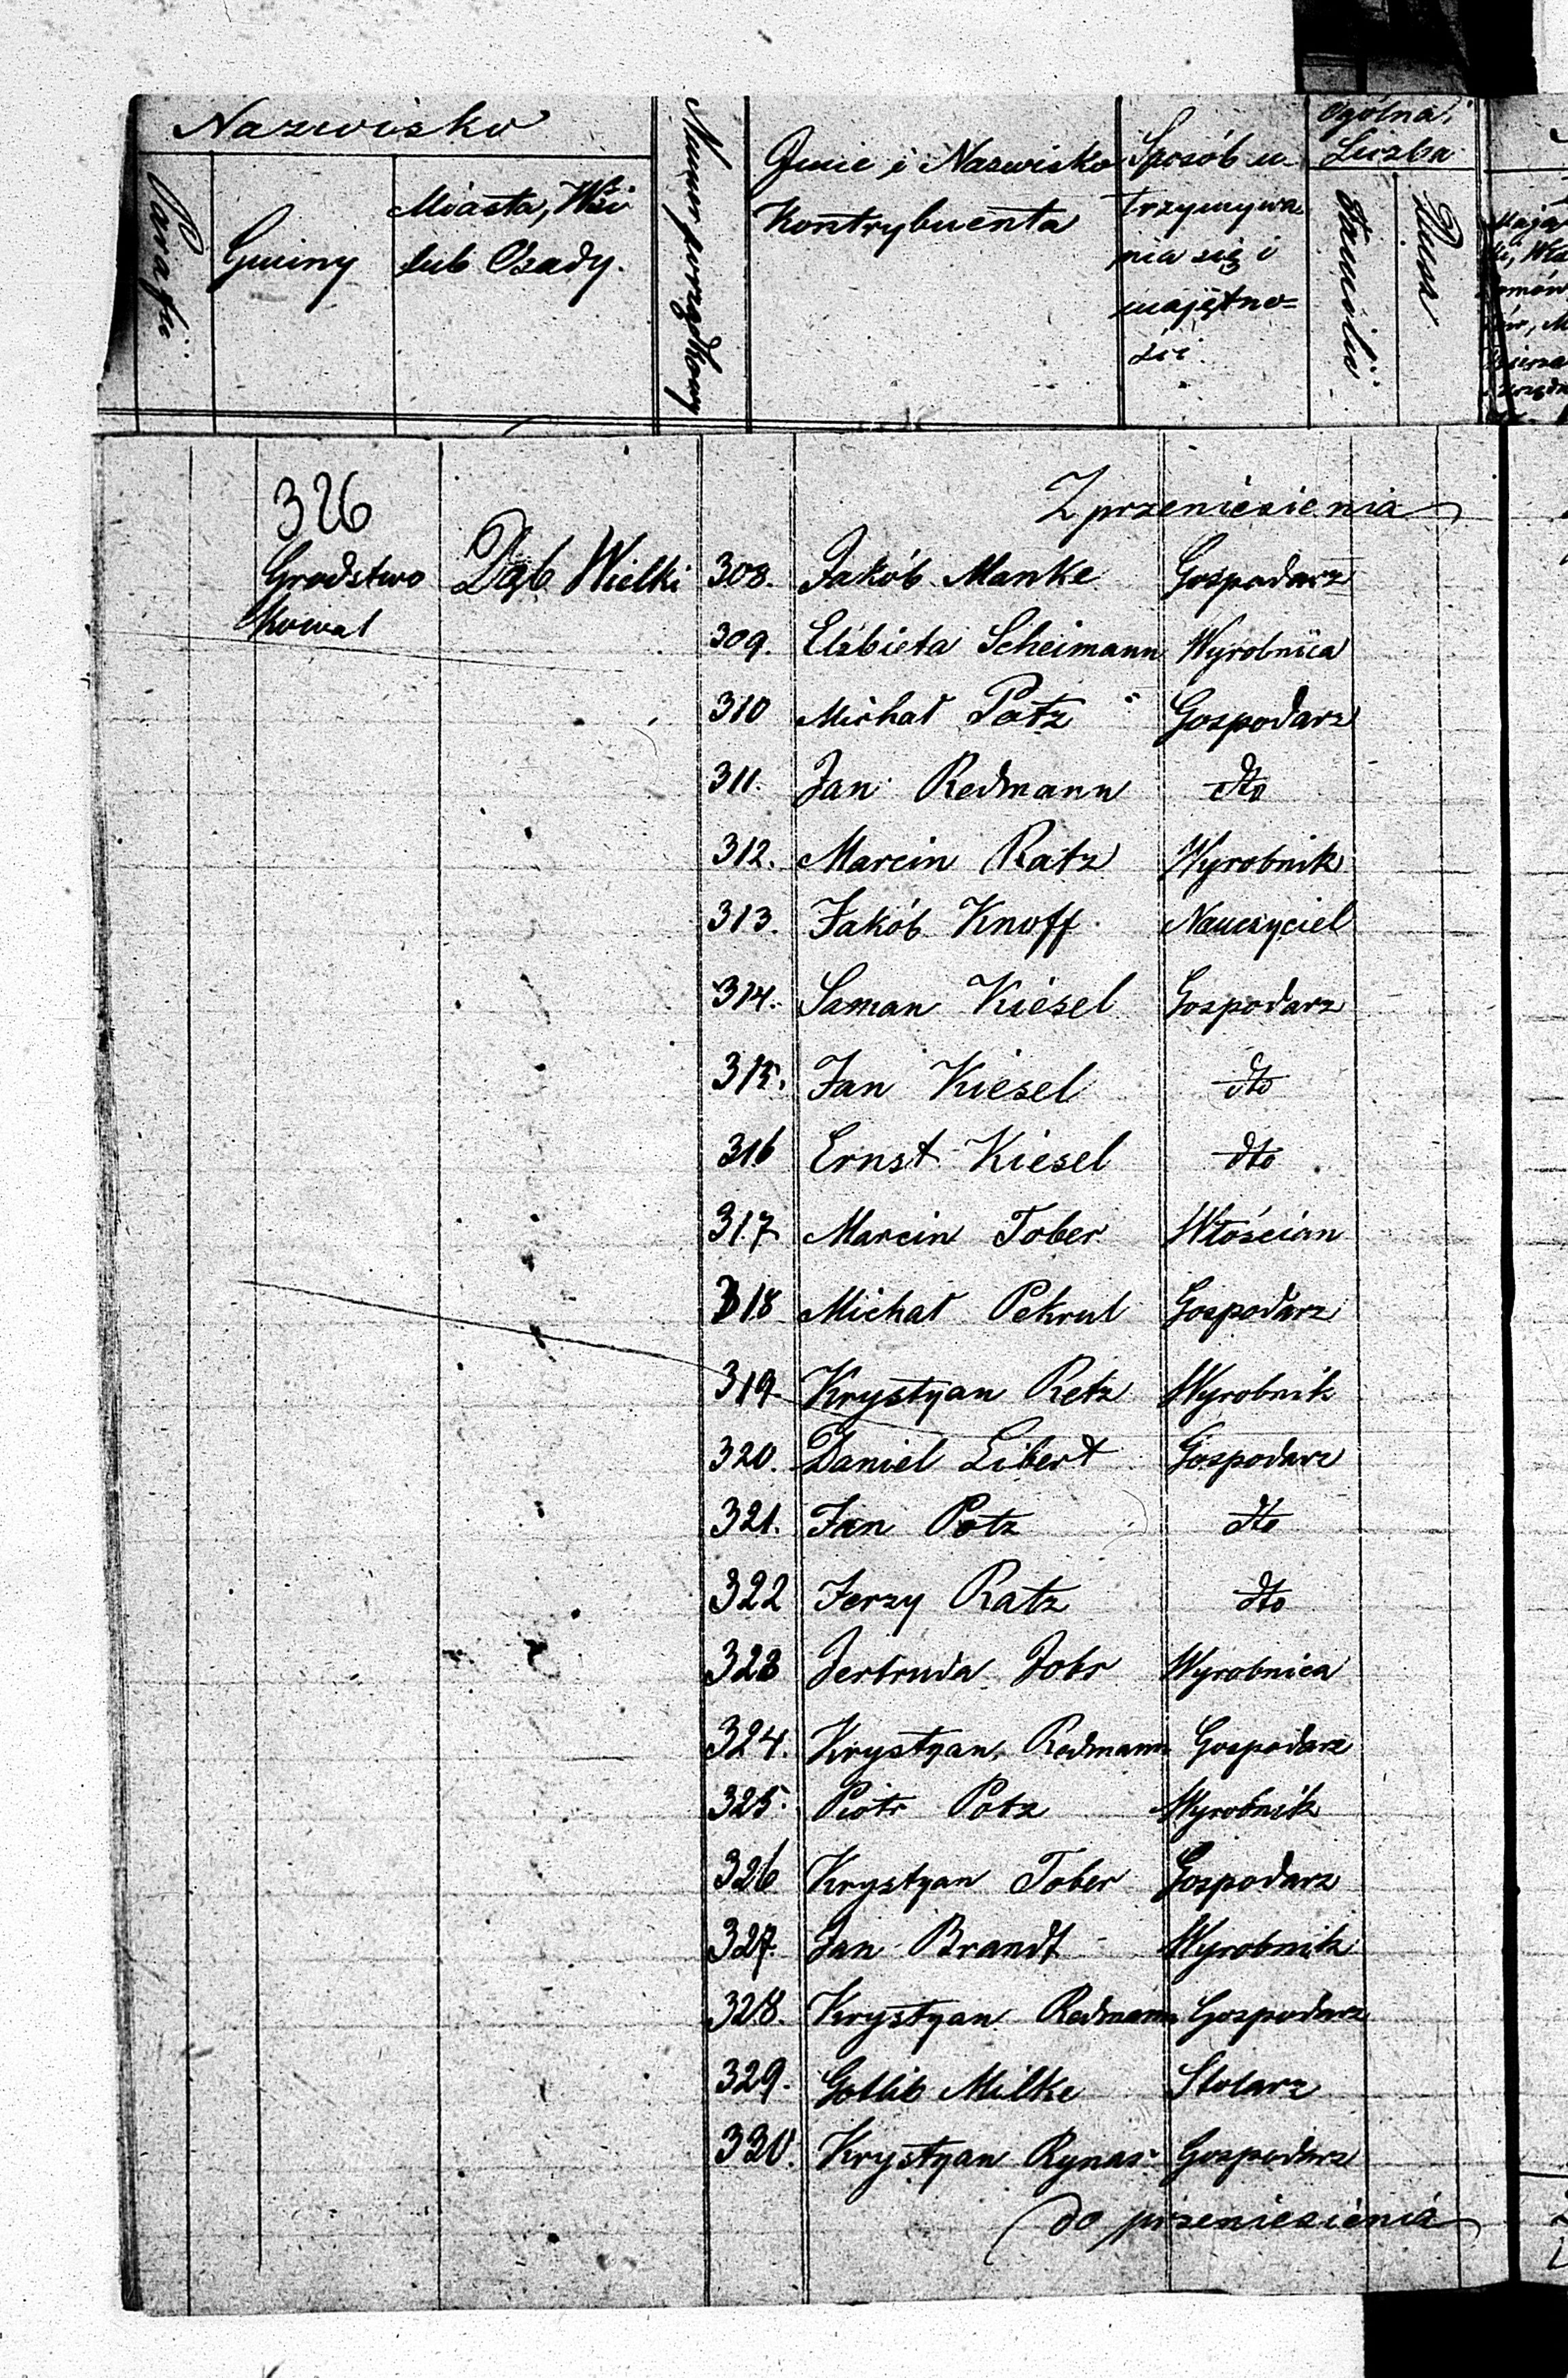 Nazwisko
Parafii
Gminy
Miasta, Wsi
lub Osady.
Numer porządkowy
Imie i Nazwisko
Kontrybuenta
Sposób u-
trzymywa
nia się i
majętno=
ści.
Ogólna
Liczba
Familii
Dusz
326
Z przeniesienia
Grodstwo Dąb Wielki 308. Jakób Manke Gospodarz
Kowal
309. Elżbieta Scheimann Wyrobnica
310 Michał Potz Gospodarz
311. Jan Redmann dto
312. Marcin Ratz Wyrobnik
313. Jakób Knoff Nauczyciel
314. Saman Kiesel Gospodarz
315. Jan Kiesel dto
316 Ernst Kiesel dto
317 Marcin Tober Włościan
318 Michał Pekrul Gospodarz
319. Krystyan Retz Wyrobnik
320. Daniel Libert Gospodarz
321. Jan Potz dto
322 Jerzy Ratz dto
323 Jertruda Wyrobnica
324. Krystyan Redmann Gospodarz
325. Piotr Potz Wyrobnik
326 Krystyan Tober Gospodarz
327. Jan Brandt Wyrobnik
328. Krystyan Redmann Gospodarz
329. Gotlib Milke Stolarz
330. Krystyan Rynas Gospodarz
do przeniesienia